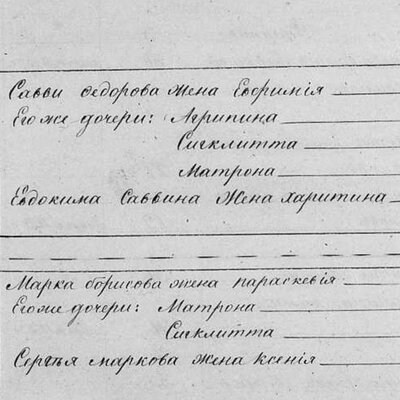 Савви Федорова жена Евфимія
Его же дочери: Агрипина
Сигклитта
Матрона
Евдокима Саввина жена харитина
Марка борисова жена параскевія
Его же дочери: Матрона
Сигклитта
Сергѣя маркова жена ксенія